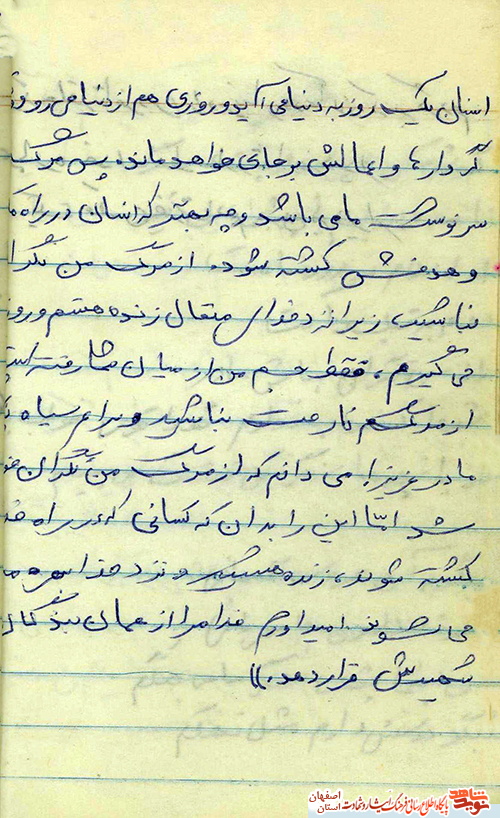 انسان یک روز به دنیا می آید و روزی هم از دنیا می رود و
کردارها و اعمالش بر جای خواهد ماند، پس مرگ
سرنوشت ما می باشد و چه بهتر که انسان در راه
و هدفش کشته شود. از مرگ من نگرا
نباشید، زیرا نزد خدای متعال زنده هستم و روز
می گیرم، فقط جسم من از میان شما رفته است
از مرگم ناراحت نباشید و برایم سیاه
مادر عزیز! می دانم که از مرگ من نگران
شد امّا این را بدان که کسانی که در راه
کشته شوند، زنده هستند و نزد خدا بهره
می شوند امیدوارم خدا مرا از همان بندگان
شهیدش قرار دهد.))
نوید شاهد
پایگاه اطلاع رسانی فرهنگ ایثار و شهادت استان اصفهان